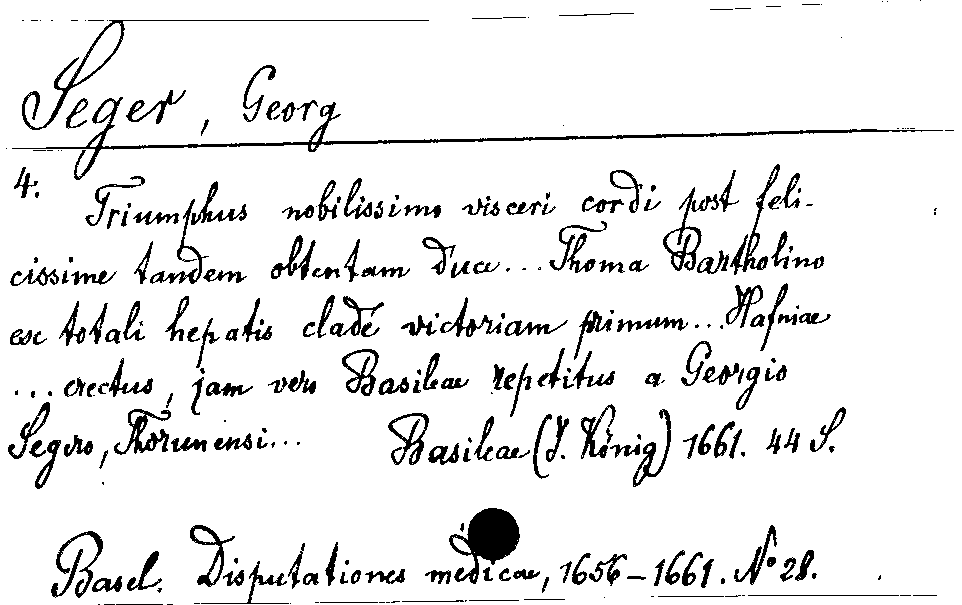 Seger, Georg
4. Triumphus nobilissimo visceri cordi post feli-
cissime tandem obtentam duce... Thoma Bartholino
ex totali hepatis clade victoriam primum... Hafniae
... erectus, jam vero Basileae repetitus a Georgio
Segero, Thorunensi... Basileae (J. König) 1661. 44 S.
Basel. Disputationes medicae, 1656-1661. No 28.